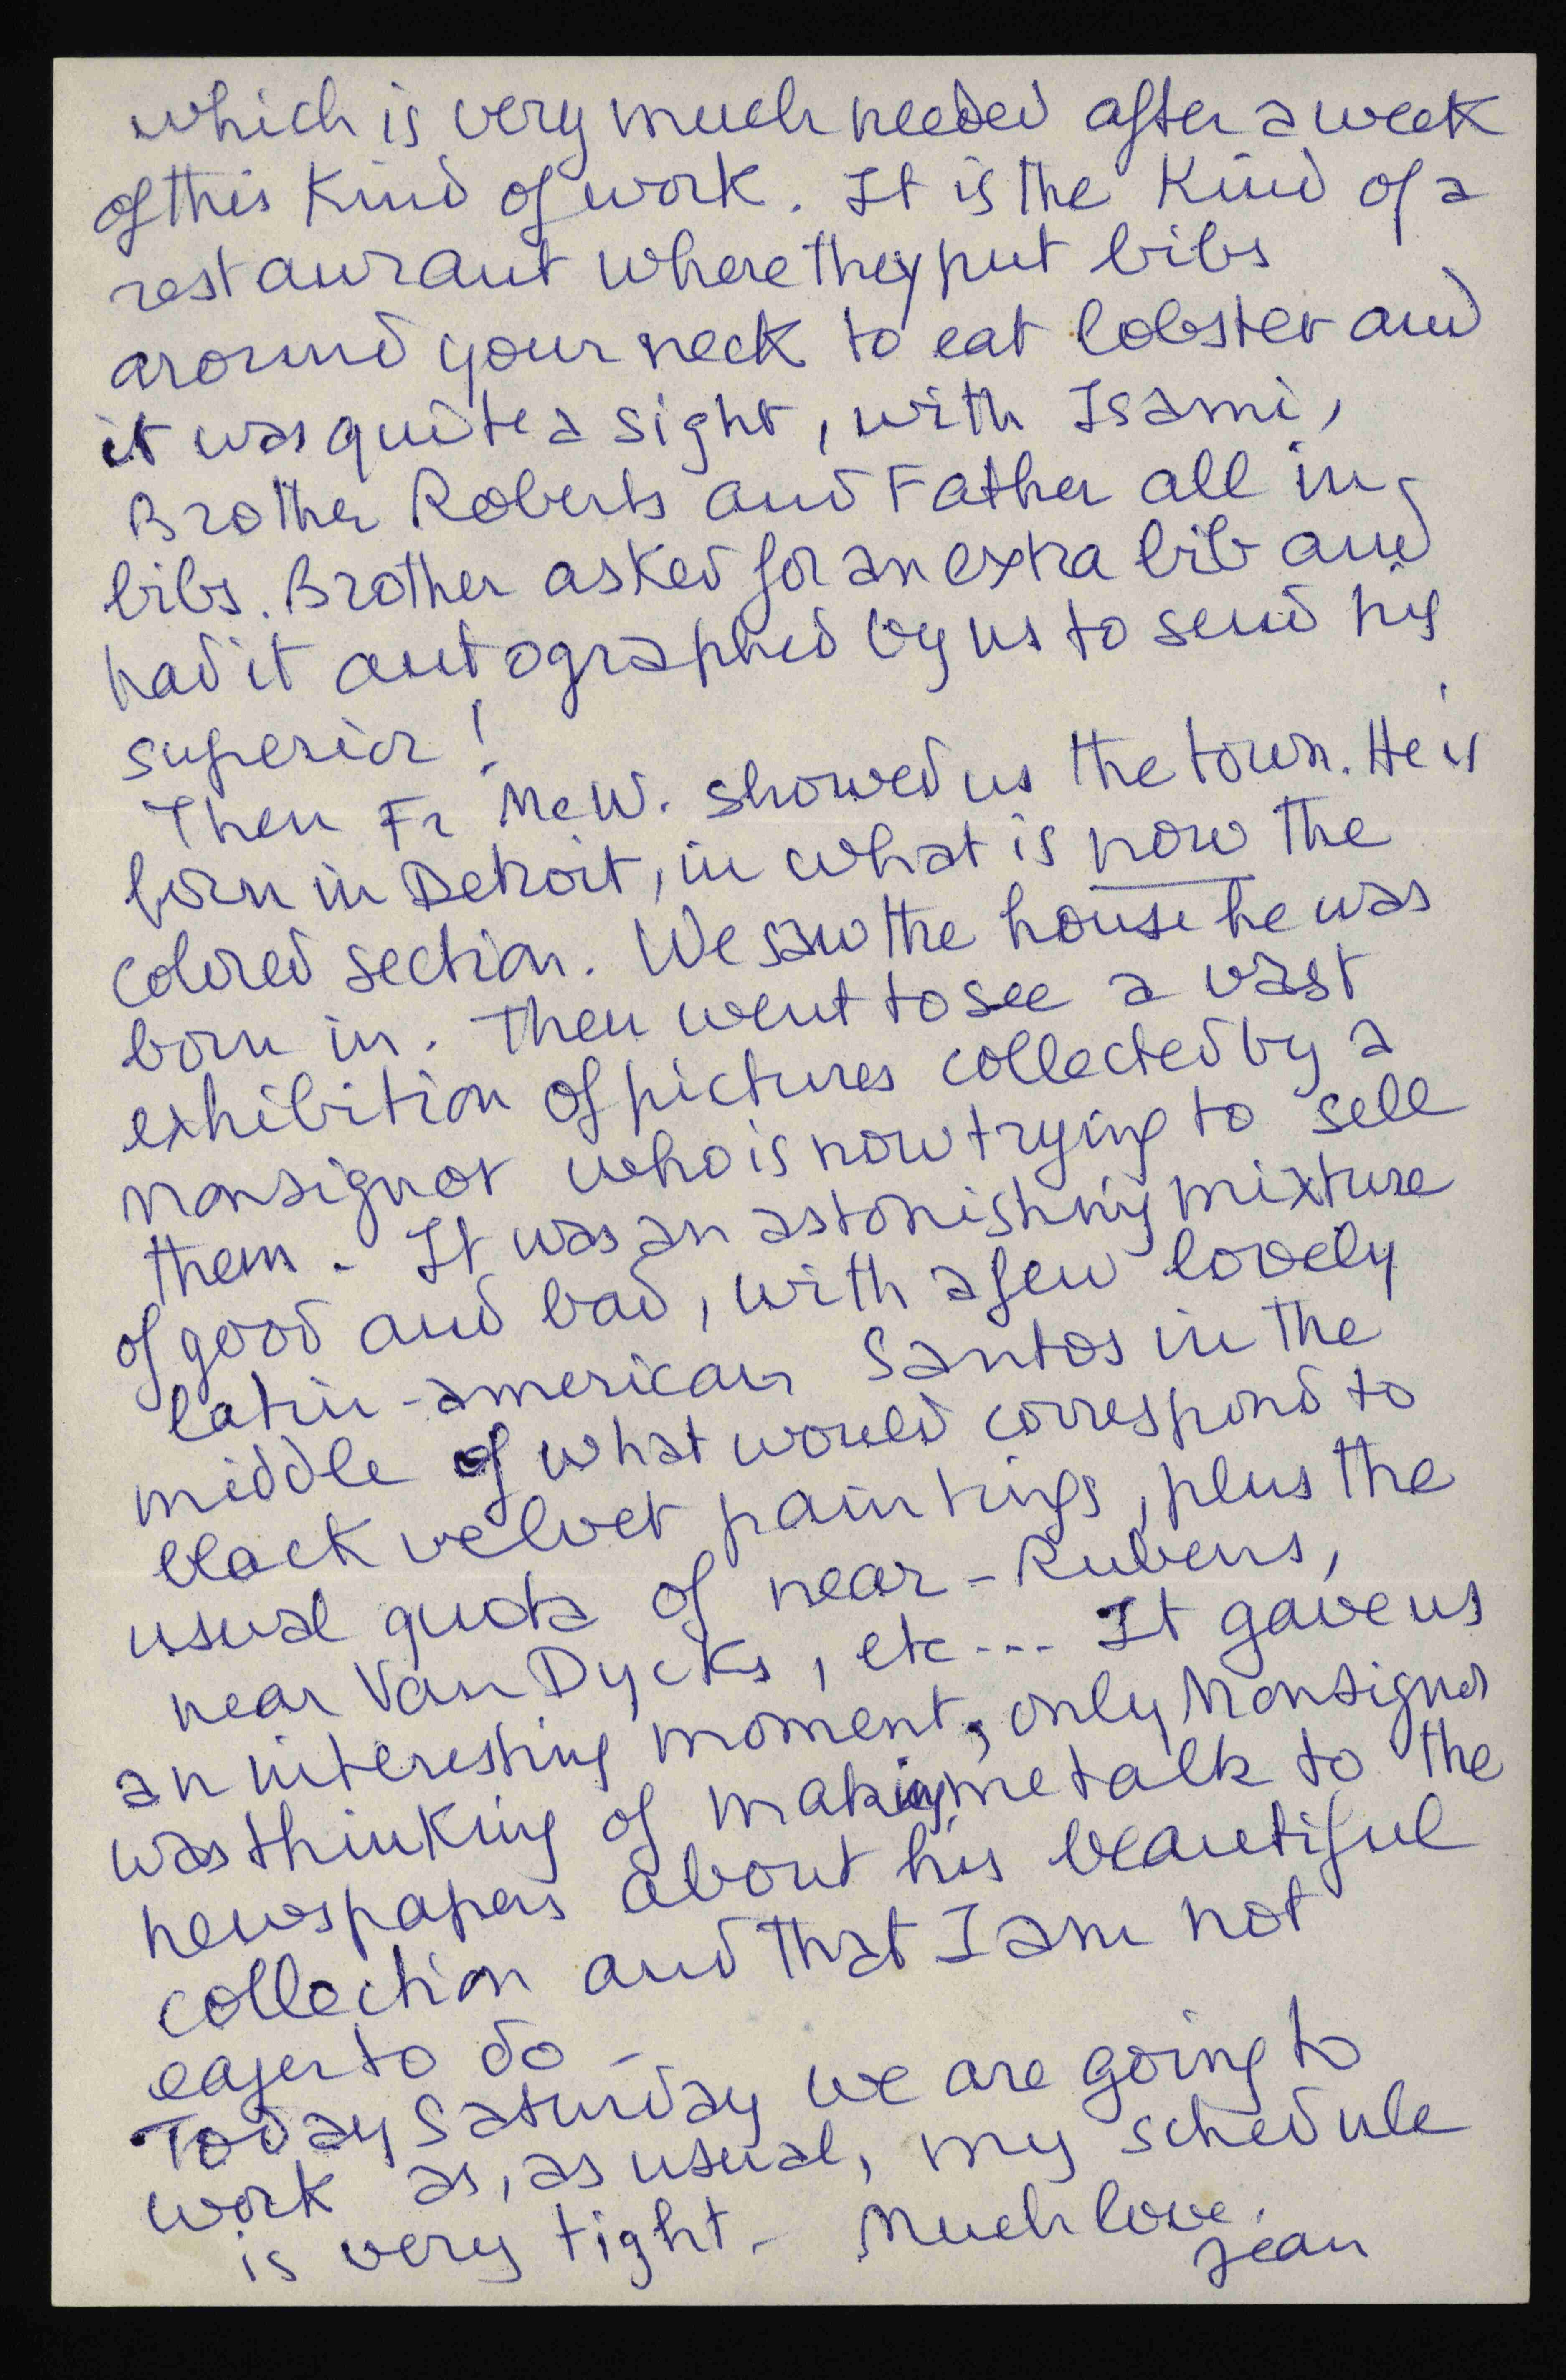 which is very much needed after a week
of this kind of work. It is the kind of a
restaurant where they put bibs
around your neck to eat lobster and
it was quite a sight, with Isami,
Brother Roberts and Father all in
bibs. Brother asked for an extra bib and
had it autographed by us to send his
superior!
Then Fr McW. showed us the town. He is
born in Detroit, in what is now the
colored section. We saw the house he was
born in. Then went to see a vast
exhibition of pictures collected by a
Monsignor who is now trying to sell
them. It was an astonishing mixture
of good and bad, with a few lovely
latin-american Santos in the
middle of what would correspond to
black velvet paintings, plus the
usual quota of near-Rubens,
near Van Dycks, etc... It gave us
an interesting moment, only Monsignor
was thinking of making me talk to the
newspapers about his beautiful
collection and that I am not
eager to do -
Today Saturday we are going to
work as, as usual, my schedule
is very tight. - Much love.
Jean